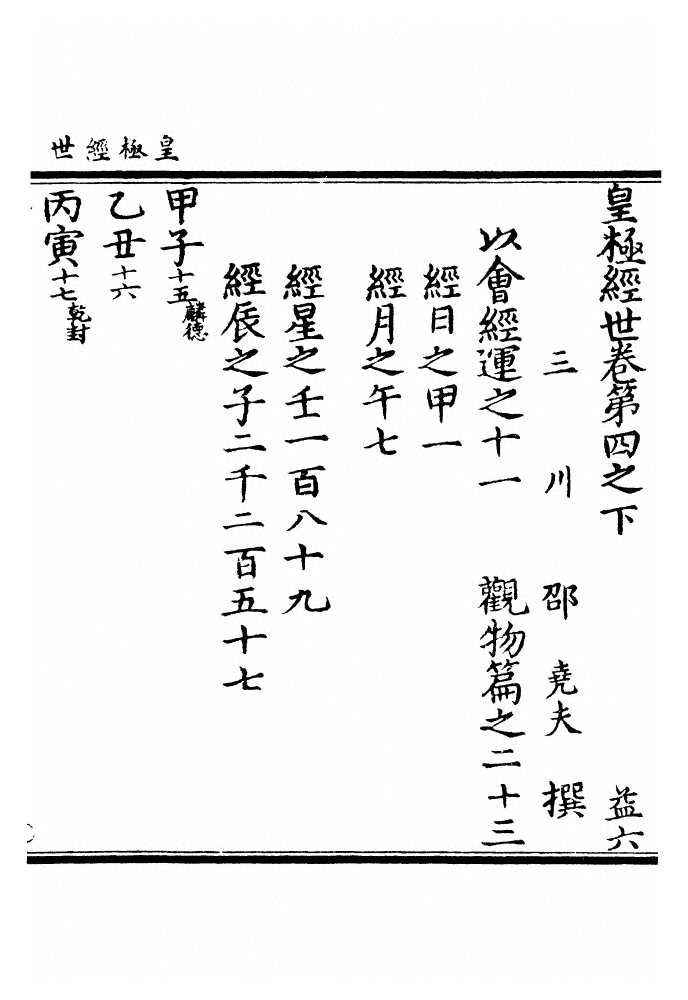 皇極經世
皇極經世卷第四之下 益六
三川 邵堯夫 撰
以會經運之十一 觀物篇之二十三
經日之甲一
經月之午七
經星之壬一百八十九
經辰之子二千二百五十七
甲子十五麟德
乙丑十六
丙寅十七乾封